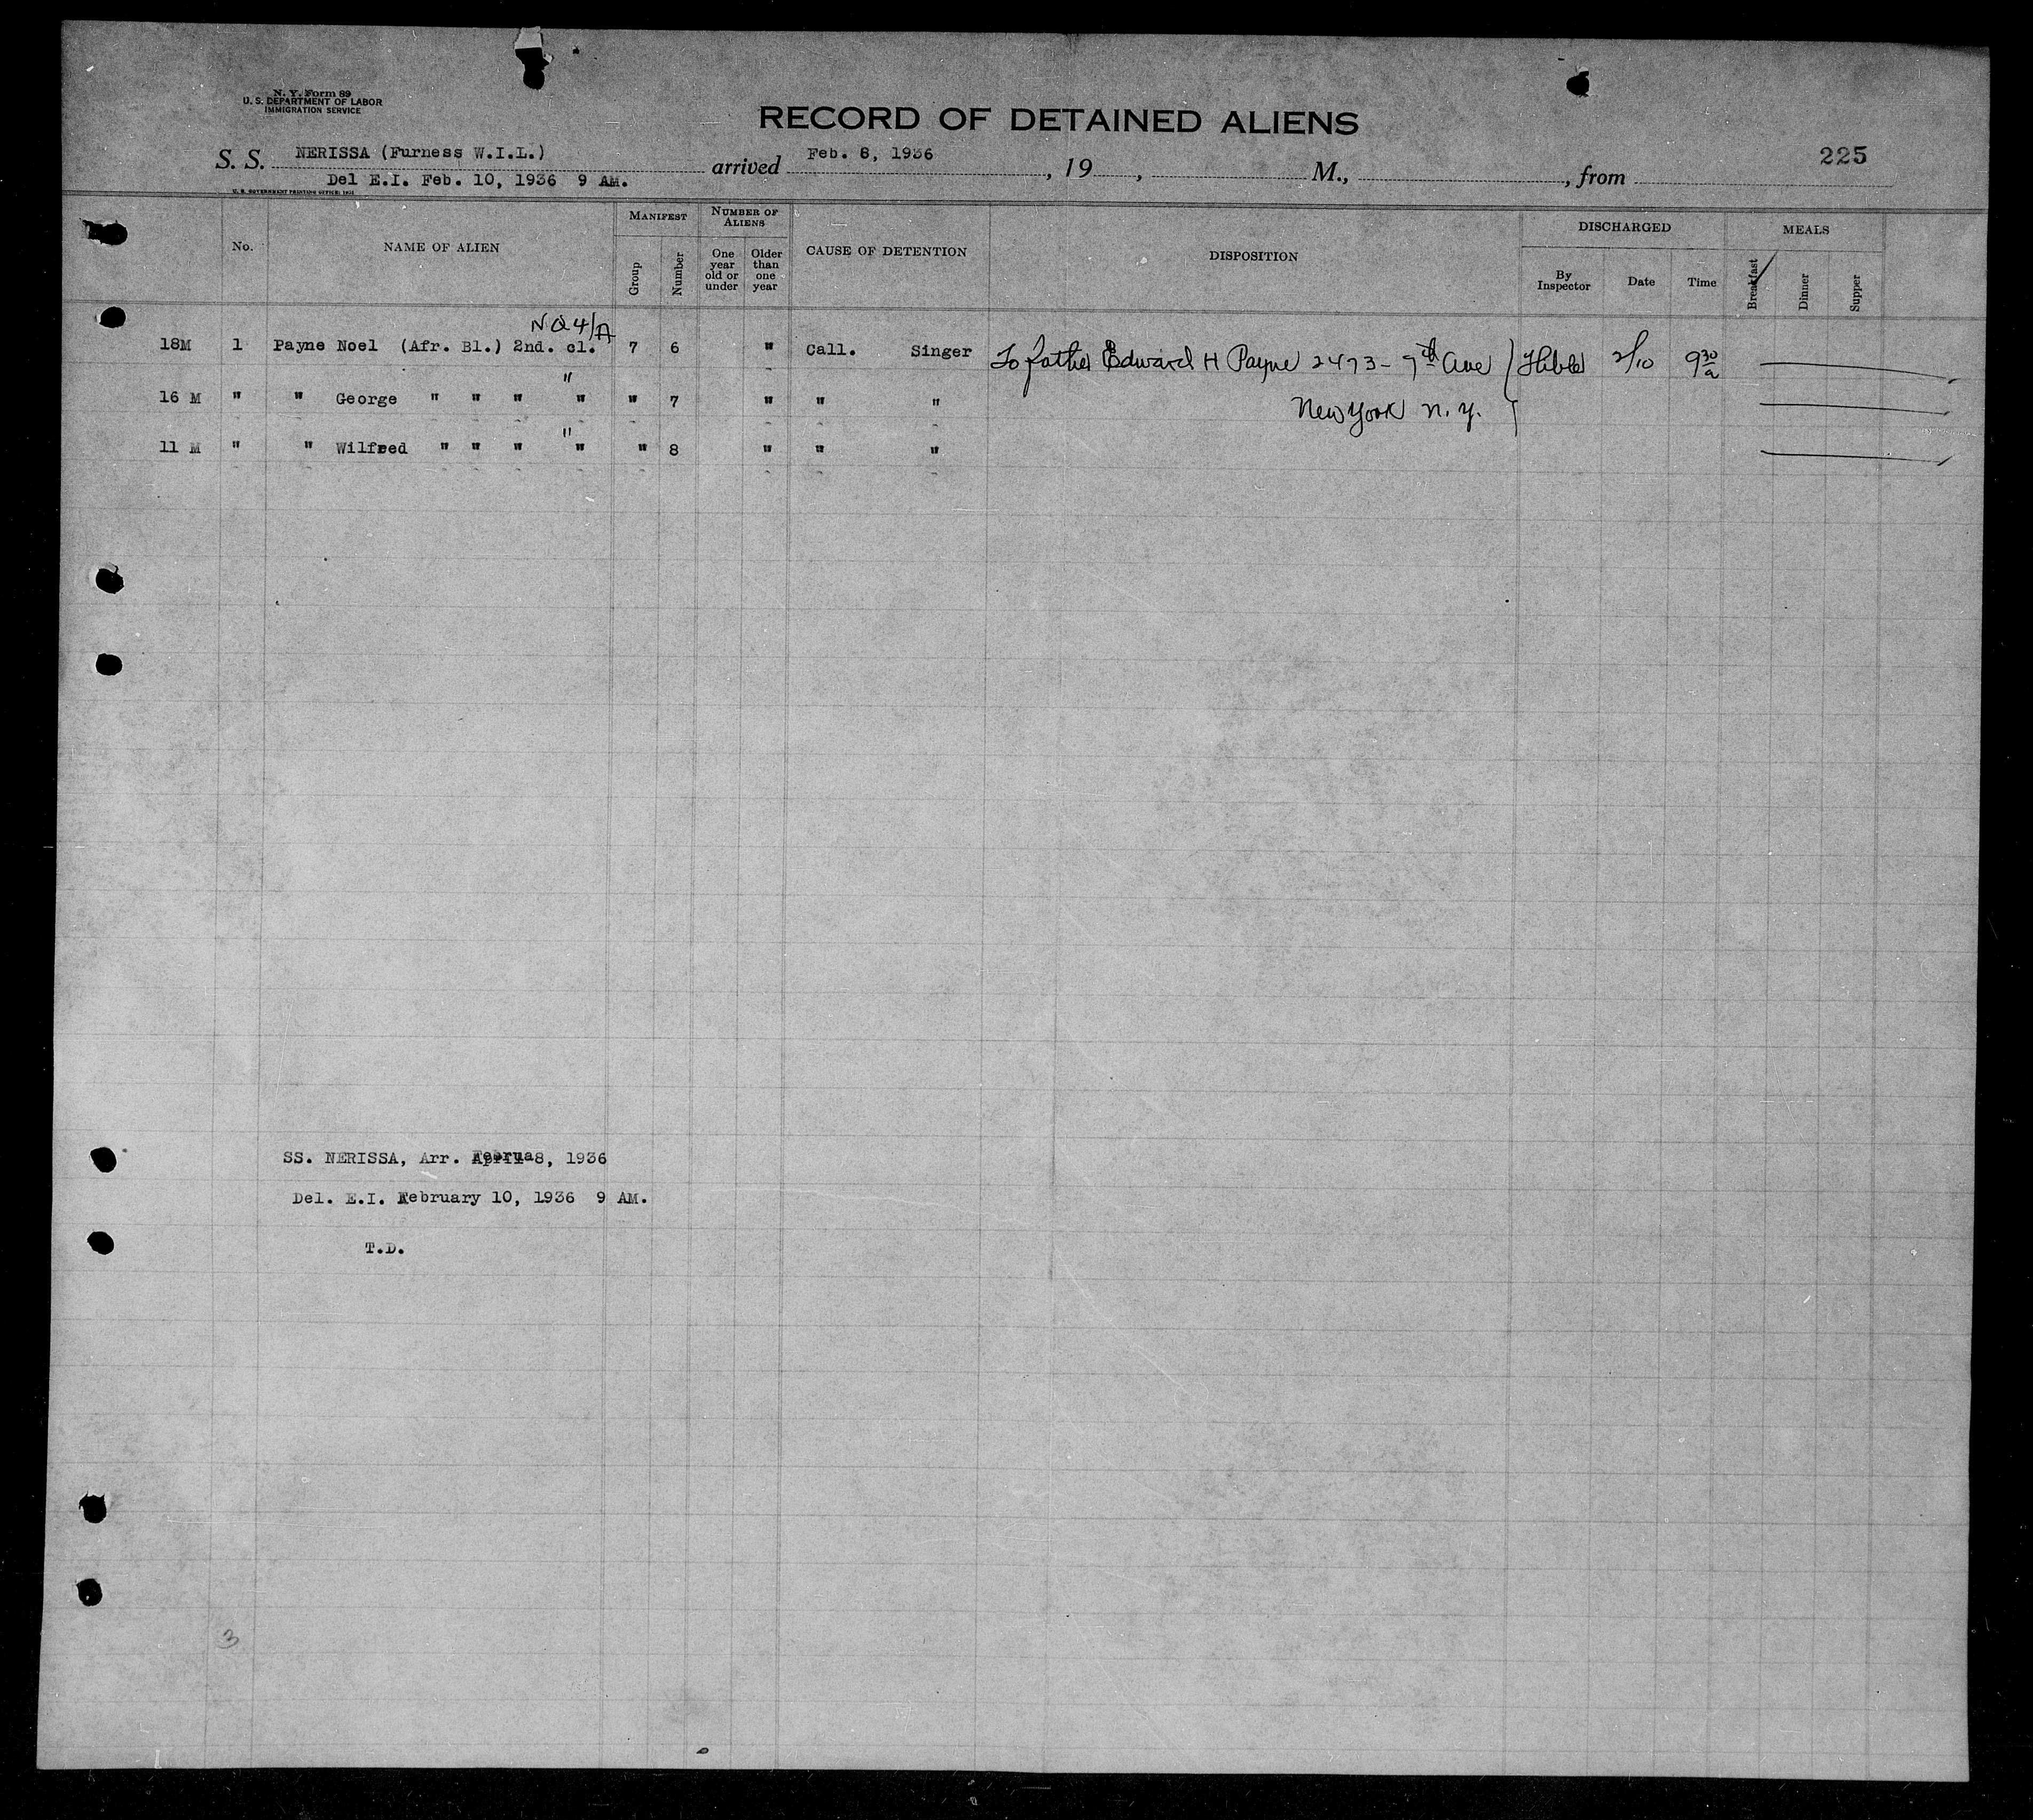 N. Y. Form 89
U. S. DEPARTMENT OF LABOR
IMMIGRATION SERVICE
RECORD OF DETAINED ALIENS
S. S. NERISSA (Furness W.I.L.) arrived Feb. 8, 1936, 19, M., , from 225
Del E.I. Feb. 10, 1936 9 AM.
U. S. GOVERNMENT PRINTING OFFICE:
No. NAME OF ALIEN MANIFEST Group Number NUMBER OF ALIENS One year old or under Older than one year CAUSE OF DETENTION DISPOSITION DISCHARGED By Inspector Date Time MEALS Breakfast Dinner Supper
NQ4/A
18M 1 Payne Noel (Afr. Bl.) 2nd. cl. 7 6 " Call. Singer To father Edward H Payne 2473 - 7th Ave 2/10 9 30 a
"
16 M " " George " " " " " 7 " " " New York N. Y.
"
11 M " " Wilfred " " " " " 8 " " "
SS. NERISSA, Arr. 8, 1936
Del. E.I. February 10, 1936 9 AM.
T.D.
3